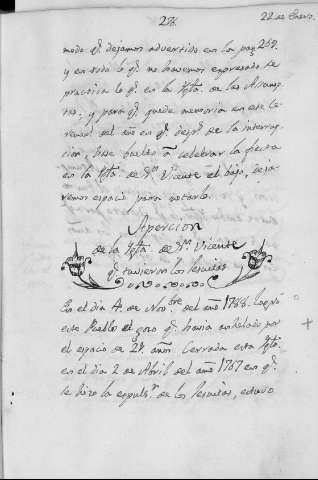 276.
22 de Enero.
modo q.e dejamos advertido en la pag 269.
y en todo lo q.e no havemos expresado se
practica lo q.e en la Ygla. de las
y para q.e quede memoria en este Ce-
remonl. del año en q.e desps. de la interrup-
cion, hase buelto à celebrar la fiesta
en la Ygla. de Sn. Vicente el bajo, deja-
remos espacio para notarlo.
Apercion
de la Ygla. de Sn. Vicente
q.e tuvieron los Jesuitas
En el dia 4. de Novbre. del año 1788. logró
este Pueblo el gozo q.e havia anhelado por
el espacio de 21. años. Cerrada esta Ygla.
en el dia 2 de Abril del año 1767 en q.e
se hizo la expulsn. de los Jesuitas, estuvo